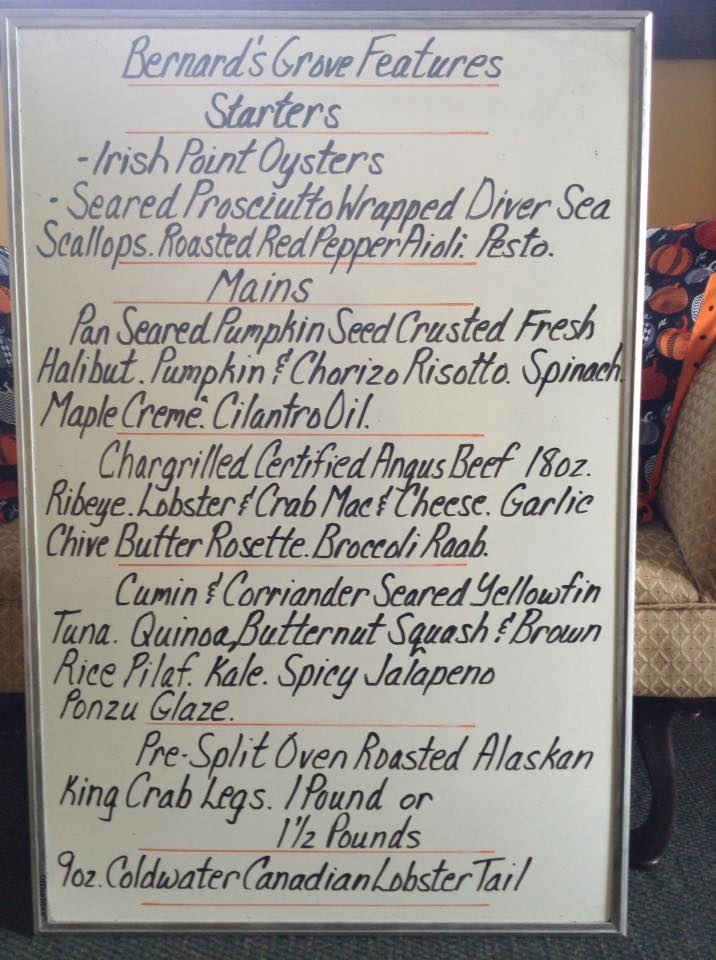 Bernard's Grove Features
Starters
-Irish Point Oysters
- Seared Prosciutto Wrapped Diver Sea
Scallops. Roasted Red Pepper Aioli. Pesto.
Mains
Pan Seared Pumpkin Seed Crusted Fresh
Halibut. Pumpkin & Chorizo Risotto. Spinach.
Maple Creme. Cilantro Oil.
Chargrilled Certified Angus Beef 18oz.
Ribeye. Lobster & Crab Mac & Cheese. Garlic
Chive Butter Rosette. Broccoli Raab.
Cumin & Corriander Seared Yellowfin
Tuna. Quinoa, Butternut Squash & Brown
Rice Pilaf. Kale. Spicy Jalapeno
Ponzu Glaze.
Pre-Split Oven Roasted Alaskan
King Crab Legs. 1 Pound or
1 1/2 Pounds
9oz. Coldwater Canadian Lobster Tail